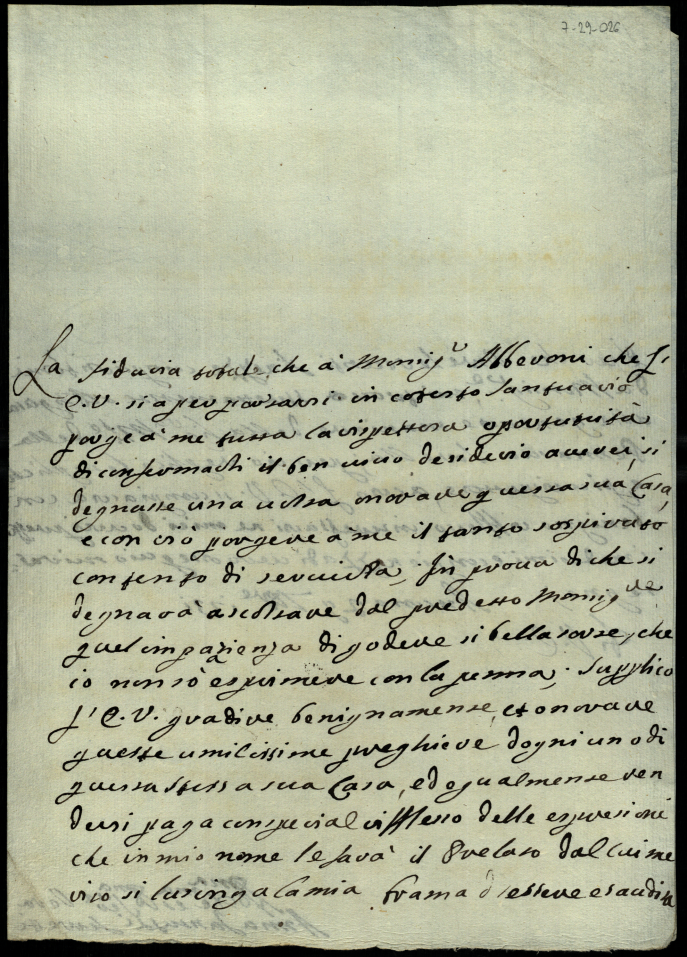 7-29-026
La fiducia total che à Monsig.r Abbevoni che l'
E.V. si a per portarsi in cotesto Santuario
porge à me tutta la rispettosa oportunità
di confermarli il ben vivo desiderio averei, si
degnasse una volta onorare questa sua Casa,
e con ciò porgere à me il tanto sospirato
contento di servirla, In prova di che si
degnarà ascoltare dal predetto Monsig.re
quel impazienza di godere si bella sorte, che
io non sò esprimere con la penna; Supplico
l'E.V. gradire benignamente, et onorare
queste umilissime preghiere dogni uno di
questa stessa sua Casa, ed egualmente ren
dersi paga con special riflesso delle espresioni
che in mio nome le farà il Prelato dal cui me
rito si lusinga la mia brama d'essere esaudita